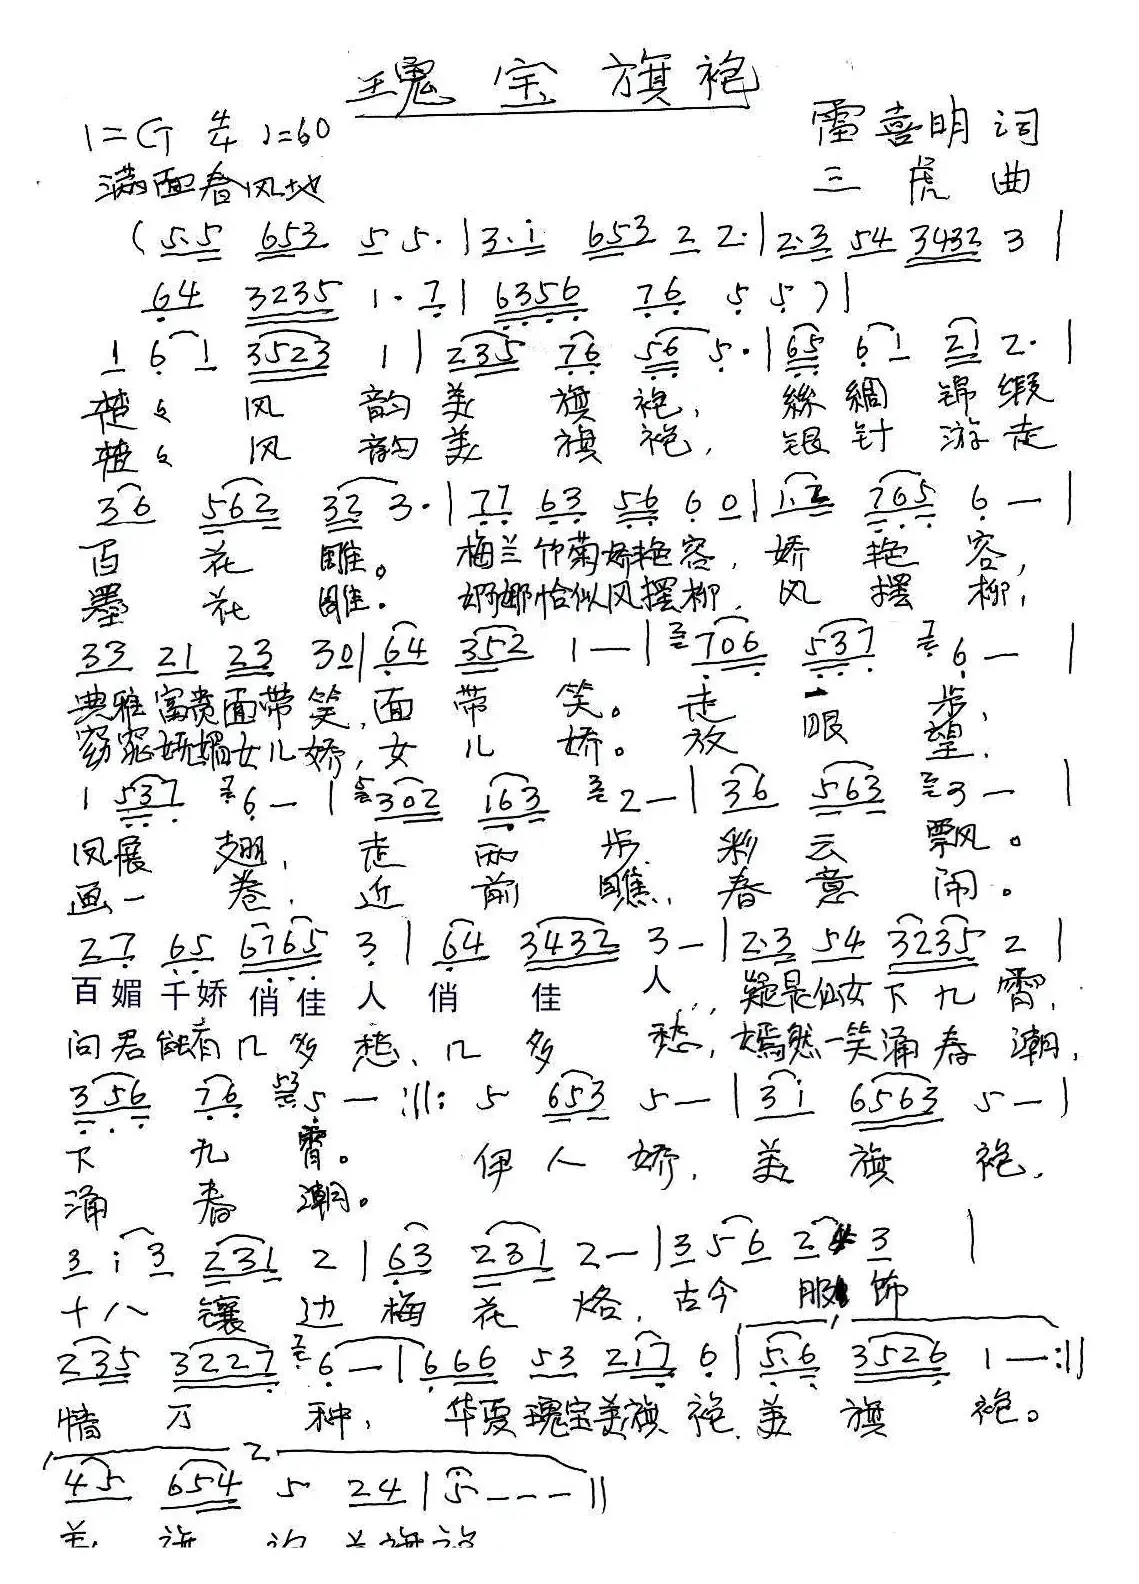 瑰宝旗袍
1=G 4/4 ♩=60
雷喜明词
满面春风地
三虎曲
(5.5 653 5 5.|3.i 653 2 2.|2.3 54 3432 3|
64 3235 1.7|6356 76 5 5)|
1 6 1 3523 1|235 76 56 5.|65 6 1 21 2.|
楚楚风韵美旗袍,絲綢锦缎
楚楚风韵美旗袍,银针游走
36 562 32 3.|77 63 56 6 0|1.2 765 6—|
百花雕。梅兰竹菊娇艳容,娇艳容,
墨花雕。婀娜恰似风摆柳,风摆柳,
33 21 23 30|64 352 1—|706 537 6—|
典雅富贵面带笑,面带笑。走一步,
窈窕妩媚女儿娇,女儿娇。放眼望,
1 537 6—|302 163 2—|36 563 3—|
凤展翅,走两步,彩云飘。
画一卷,近前瞧,春意闹。
27 65 6765 3|64 3432 3—|2.3 54 3235 2|
百媚千娇俏佳人俏佳人,疑是仙女下九霄,
问君能有几多愁,几多愁,嫣然一笑涌春潮,
356 76 53 5—:|||: 5 653 5—|3i 6563 5—|
下九霄。伊人娇,美旗袍,
涌春潮。
3 i 3 231 2|63 231 2—|3 5 6 2 3|
十八镶边梅花烙,古今服饰
235 3227 6—|666 53 217 6|5.6 3526 1—:||
情万种,华夏瑰宝美旗袍,美旗袍。
2
45 654 5 24|5———||
美旗袍美旗袍